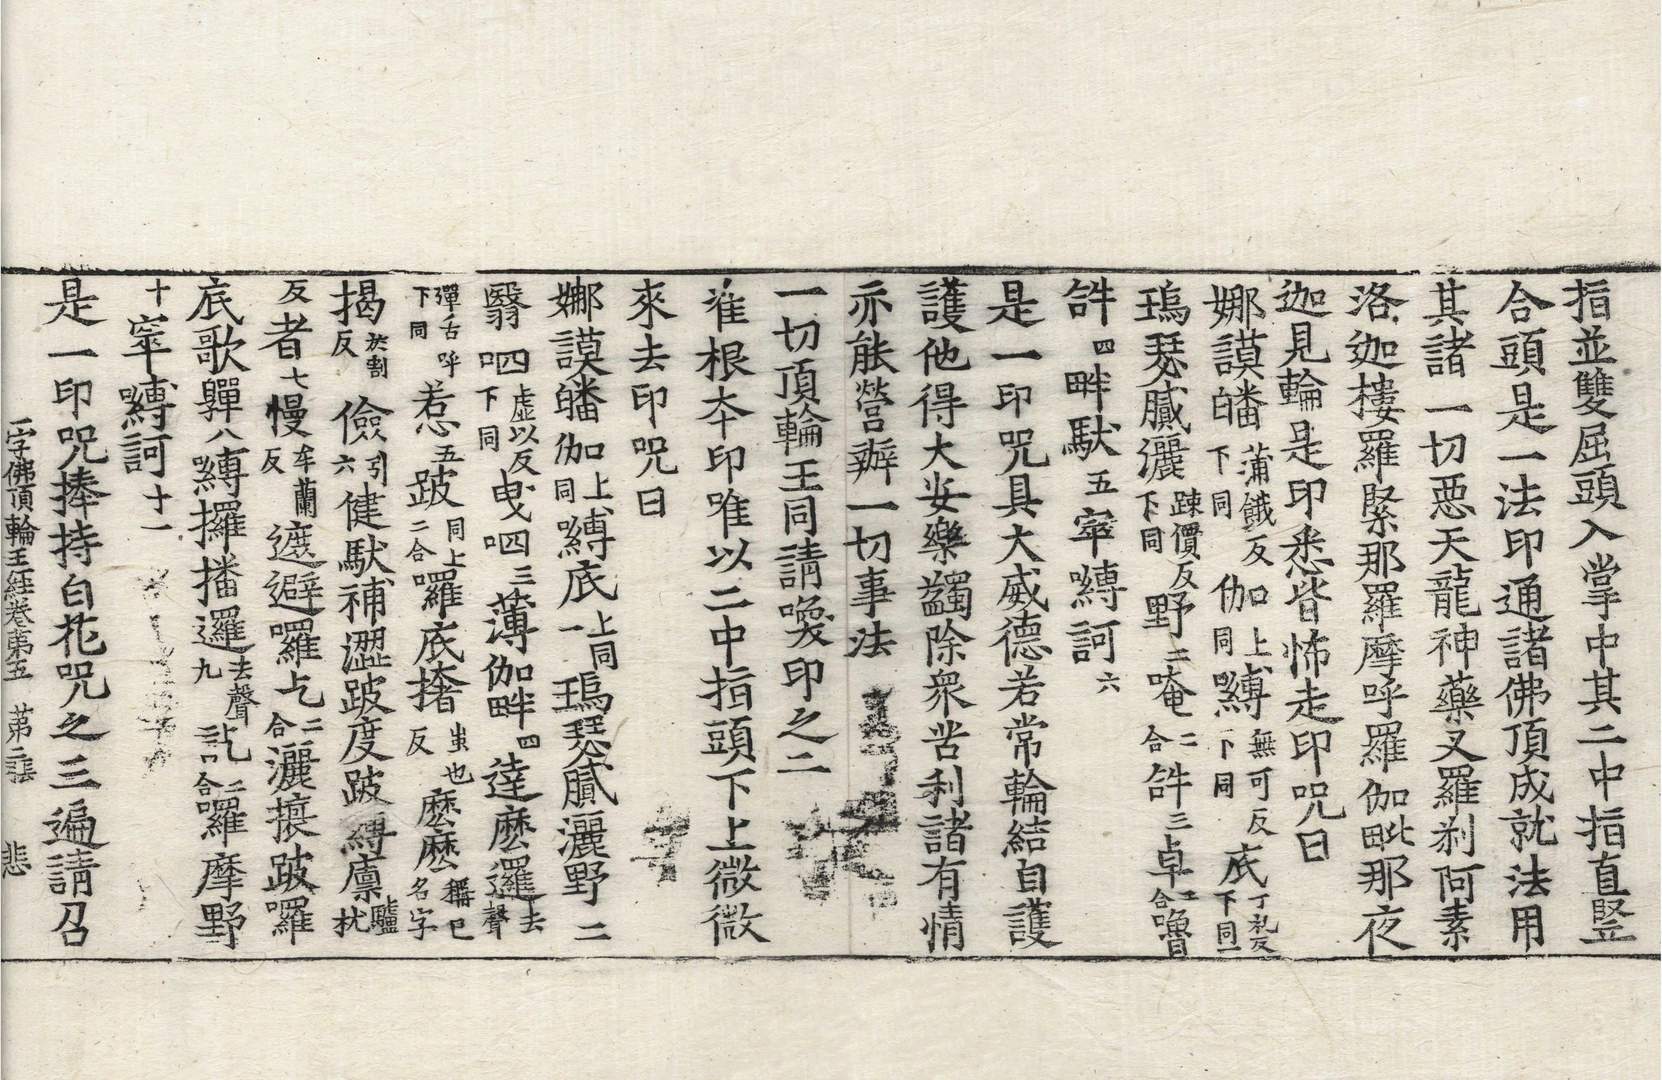 指並雙屈頭入掌中其二中指直竪
合頭是一法印通諸佛頂成就法用
其諸一切惡天龍神藥叉羅刹阿素
洛迦樓羅緊那羅摩呼羅伽毗那夜
迦見輪是印悉皆怖走印呪曰
娜謨皤蒲餓反下同伽上同嚩無可反下同底丁礼反下同一
瑪瑟膩灑疎價反下同野二唵二合𤙖三卓二合嚕
𤙖四畔䭾五窣嚩訶六
是一印呪具大威德若常輪結自護
護他得大安樂蠲除衆苦利諸有情
亦能營辦一切事法
一切頂輪王同請喚印之二
准根本印唯以二中指頭下上微微
來去印呪曰
娜謨皤伽上同嚩底上同一瑪瑟膩灑野二
翳呬虛以反下同曳呬三薄伽畔四達麼邏去聲
彈舌呼下同惹五跛同上二合囉底㨋虫也反麼麼稱己名字
揭於割反儉引六健䭾補澀跛度跛嚩廪驢枕
反者七慢牟蘭反遮避囉乞二合灑攘跛囉
底歌嚲八嚩攞播邏去聲九訖二合囉摩野
十窣嚩訶十一
是一印呪捧持白花呪之三遍請召
一字佛頂輪王經卷第五 第二張 悲